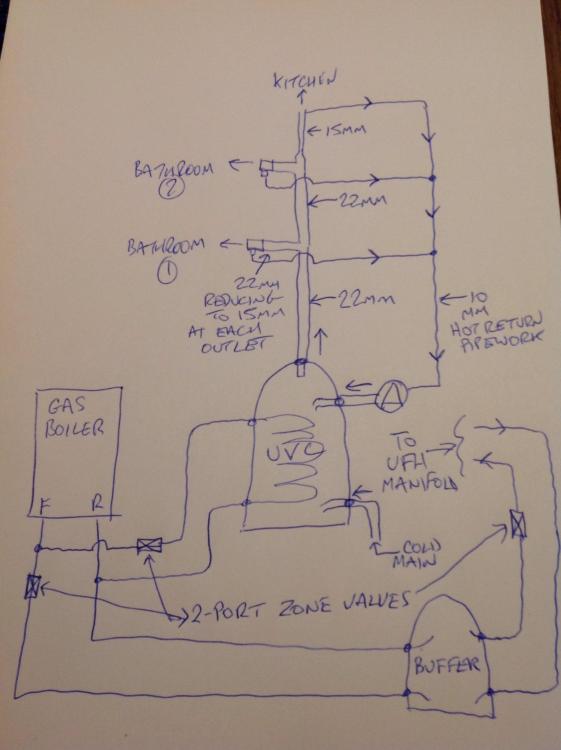 KITCHEN
15MM
BATHROOM
②
22MM
BATHROOM
①
22MM
REDUCING
TO 15MM
AT EACH
OUTLET
22MM
10
MM
HOT RETURN
PIPEWORK
GAS
BOILER
F R
UVC
TO
UFH
MANIFOLD
COLD
MAIN
2-PORT ZONE VALVES
BUFFER